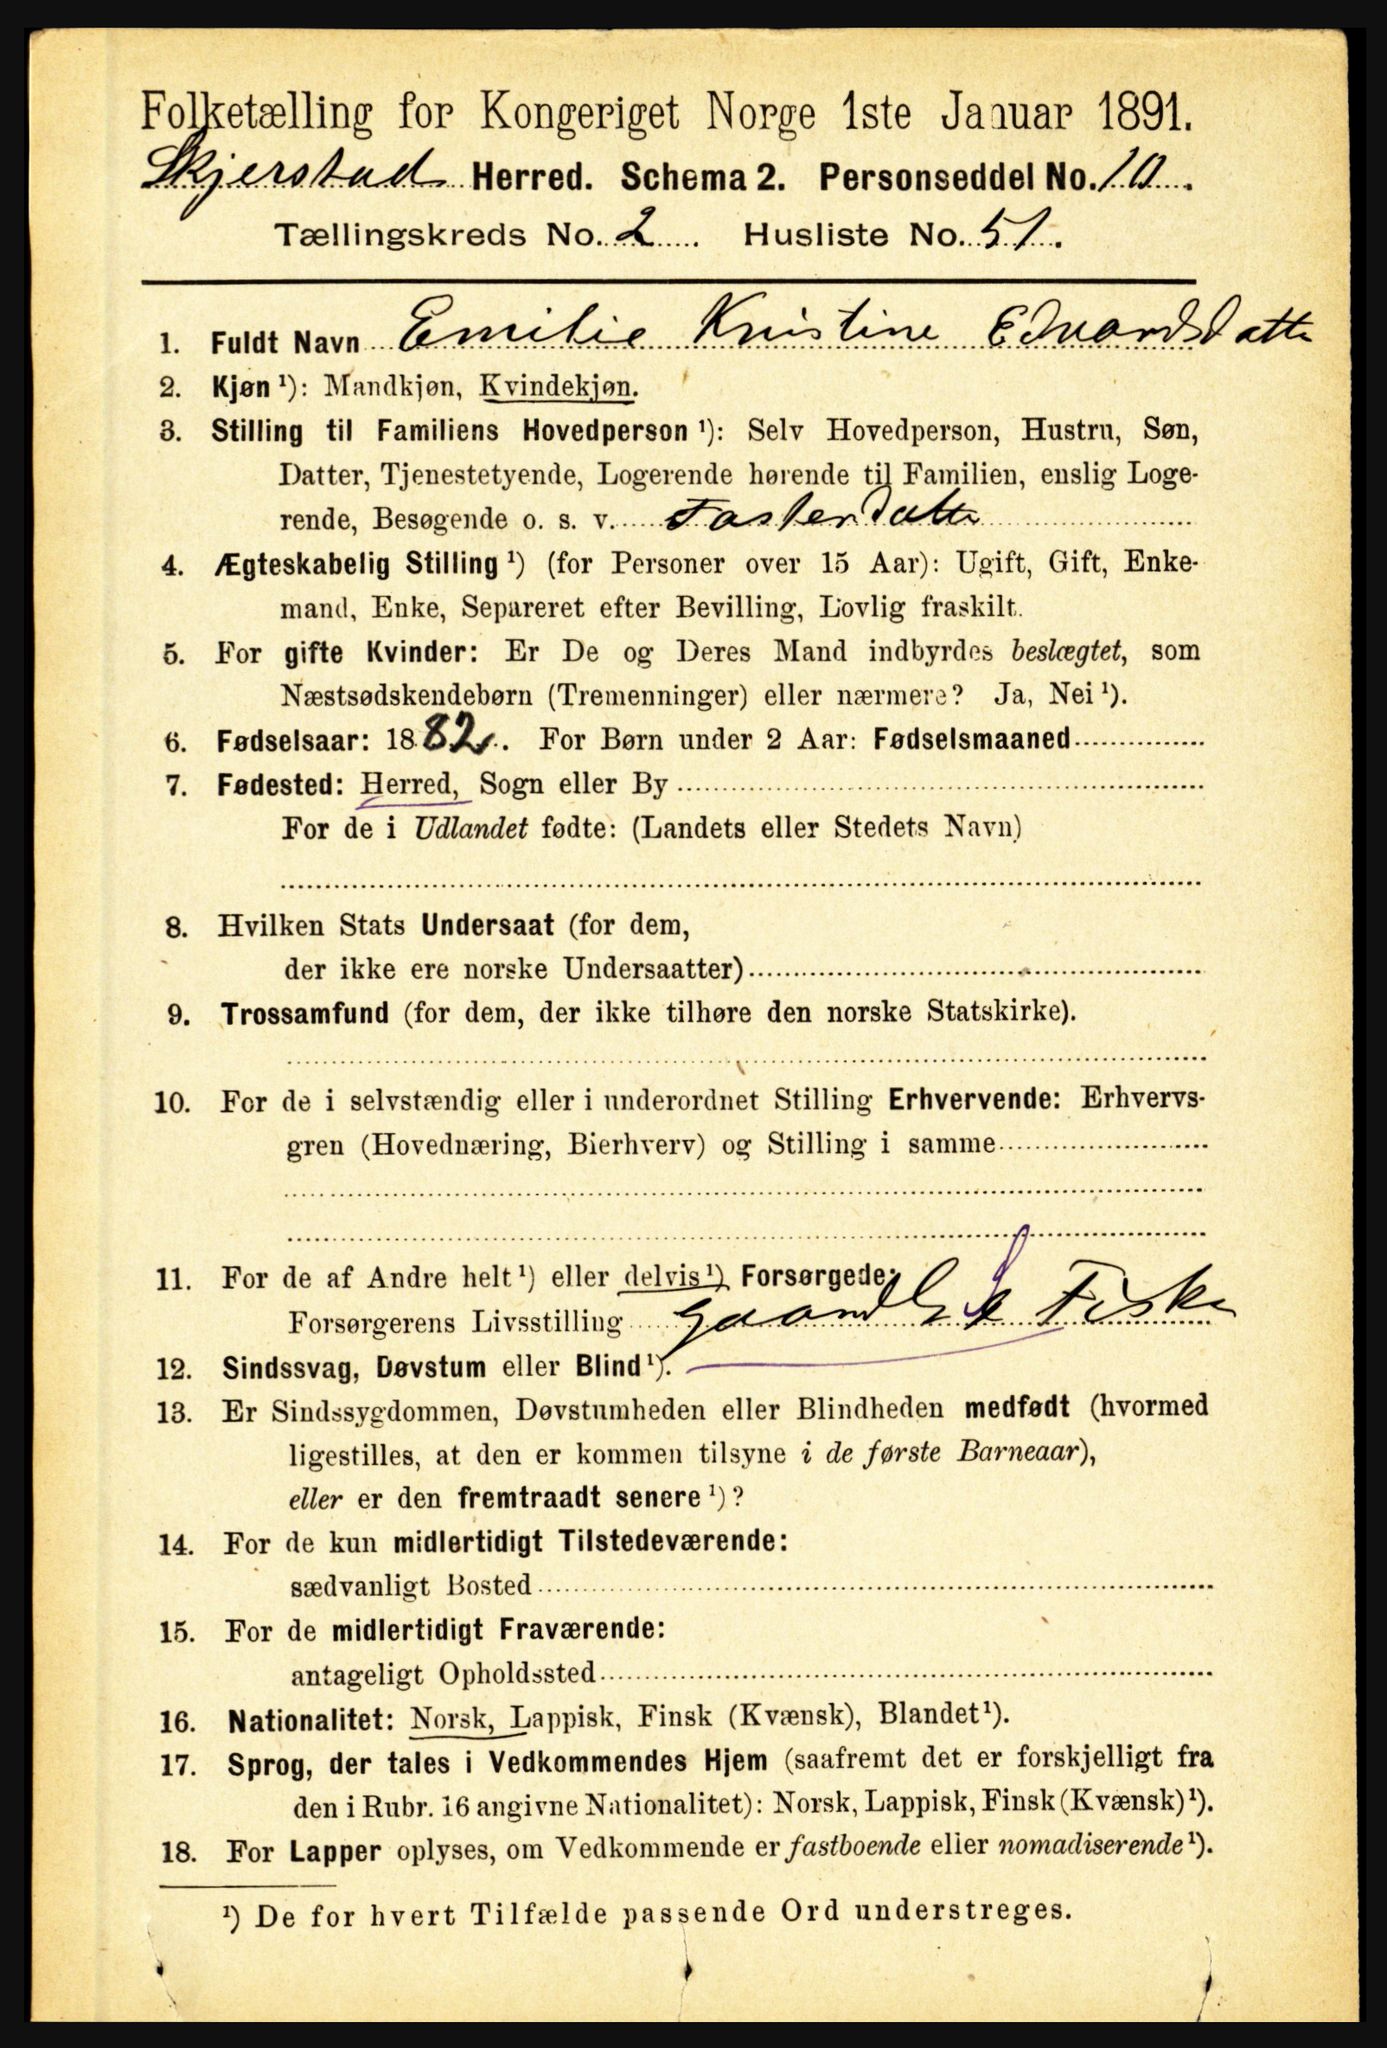 Folketælling for Kongeriget Norge 1ste Januar 1891.
Skjerstad Herred. Schema 2. Personseddel No. 10.
Tællingskreds No. 2. Husliste No. 51.
1. Fuldt Navn Emilie Kristine Edvardsdatte
2. Kjøn ¹): Mandkjøn, Kvindekjøn.
3. Stilling til Familiens Hovedperson ¹): Selv Hovedperson, Hustru, Søn,
Datter, Tjenestetyende, Logerende hørende til Familien, enslig Loge-
rende, Besøgende o. s. v. Fosterdatte
4. Ægteskabelig Stilling ¹) (for Personer over 15 Aar): Ugift, Gift, Enke-
mand, Enke, Separeret efter Bevilling, Lovlig fraskilt.
5. For gifte Kvinder: Er De og Deres Mand indbyrdes beslægtet, som
Næstsødskendebørn (Tremenninger) eller nærmere? Ja, Nei ¹).
6. Fødselsaar: 1882. For Børn under 2 Aar: Fødselsmaaned
7. Fødested: Herred, Sogn eller By
For de i Udlandet fødte: (Landets eller Stedets Navn)
8. Hvilken Stats Undersaat (for dem,
der ikke ere norske Undersaatter)
9. Trossamfund (for dem, der ikke tilhøre den norske Statskirke).
10. For de i selvstændig eller i underordnet Stilling Erhvervende: Erhvervs-
gren (Hovednæring, Bierhverv) og Stilling i samme
11. For de af Andre helt ¹) eller delvis ¹) Forsørgede:
Forsørgerens Livsstilling Gaardb Fisker
12. Sindssvag, Døvstum eller Blind ¹).
13. Er Sindssygdommen, Døvstumheden eller Blindheden medfødt (hvormed
ligestilles, at den er kommen tilsyne i de første Barneaar),
eller er den fremtraadt senere ¹)?
14. For de kun midlertidigt Tilstedeværende:
sædvanligt Bosted
15. For de midlertidigt Fraværende:
antageligt Opholdssted
16. Nationalitet: Norsk, Lappisk, Finsk (Kvænsk), Blandet ¹).
17. Sprog, der tales i Vedkommendes Hjem (saafremt det er forskjelligt fra
den i Rubr. 16 angivne Nationalitet): Norsk, Lappisk, Finsk (Kvænsk) ¹).
18. For Lapper oplyses, om Vedkommende er fastboende eller nomadiserende ¹).
¹) De for hvert Tilfælde passende Ord understreges.